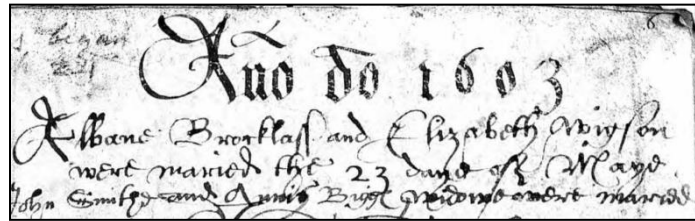 began
6
Ano do 1603
Albane Brocklass and Elizabeth Wigson
were maried the 23 daye of Maye
John Smithe and Annis Bigge widowe were maried